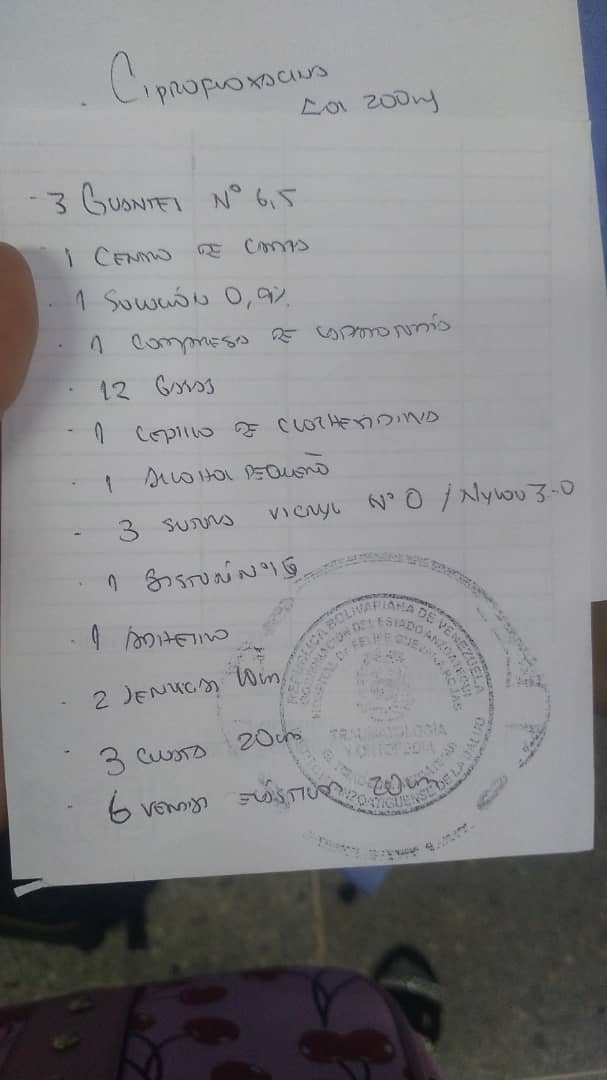 . Ciprofloxacino
sol 200mg
- 3 Guantes N° 6,5
1 Centro de cama
. 1 Solución 0,9%
. 1 Compresa de
. 12 Gasas
. 1 Cepillo de Clorhexidina
. 1 Alcohol pequeño
- 3 sutura vicryl N° 0 / Nylon 3-0
. 1 Bisturí N° 15
. 1 Adhesivo
. 2 Jeringas 10cm
. 3 Guata 20cm
. 6 vendas elásticas 20cm
REPÚBLICA BOLIVARIANA DE VENEZUELA
GOBERNACIÓN DEL ESTADO ANZOÁTEGUI
TRAUMATOLOGÍA
ANZOATIGUENSE DE LA SALUD